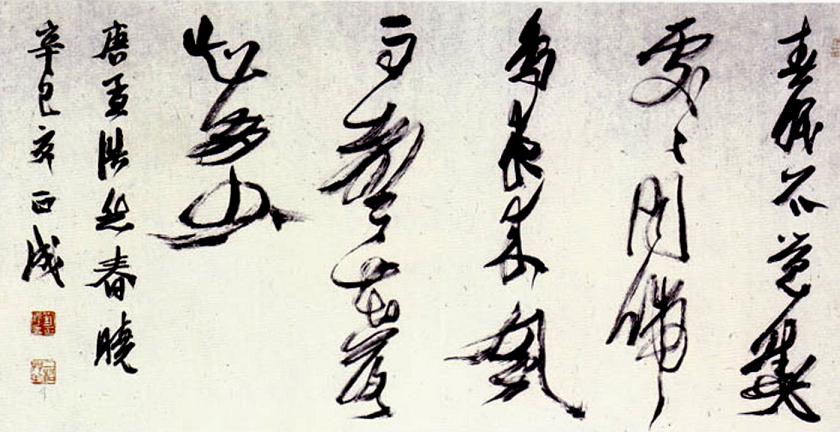 春眠不覺曉
處々聞啼
鳥夜來風
雨聲花落
知多少
唐孟浩然春曉
辛巳正成